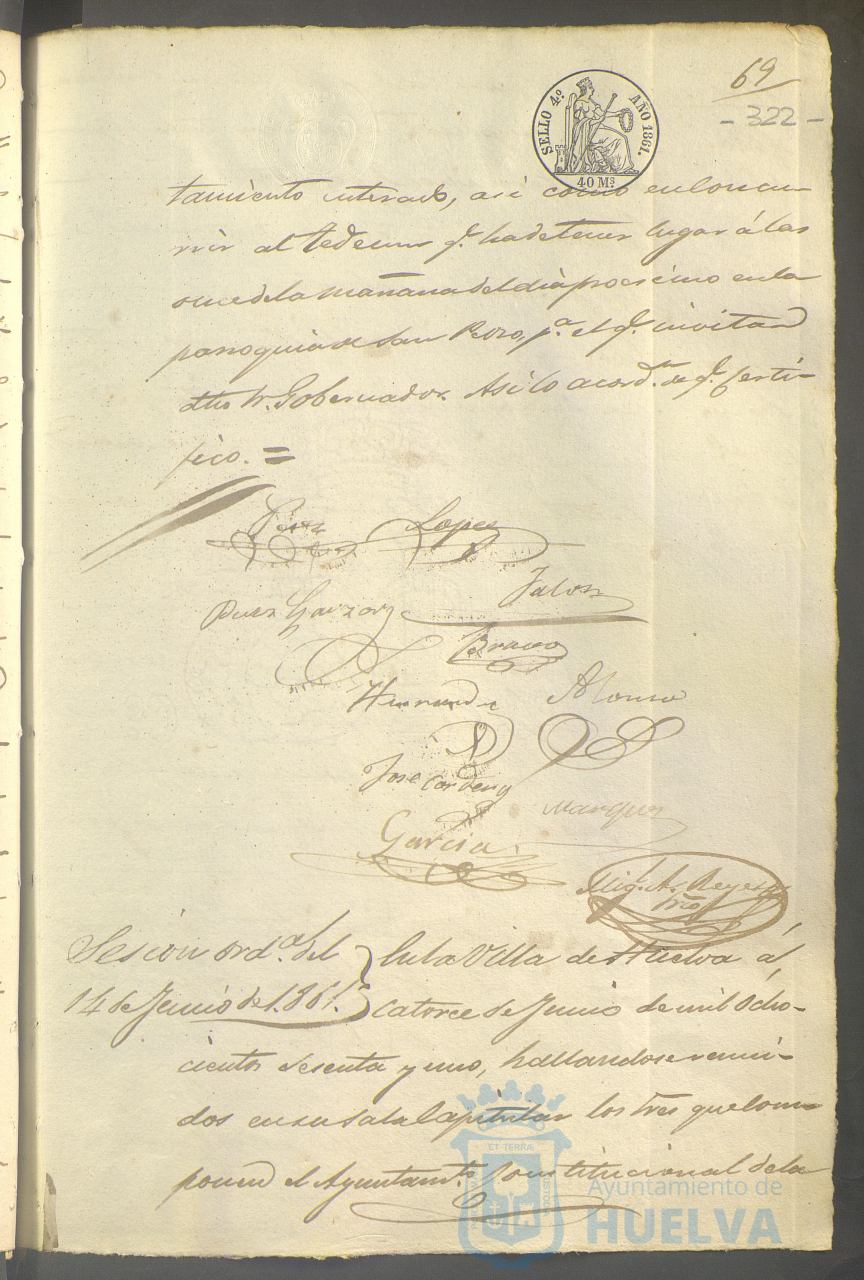 69
- 322 -
SELLO 4º AÑO 1861.
40 Ms.
tamiento enterado, asi como en concu-
rrir al Tedeum q.e ha de tener lugar á las
once de la mañana del dia procsimo en la
parroquia de San Pedro, p.a el q.e invita
dho Sr. Gobernador. Asi lo acord.n de q.e certi-
fico. =
Perez Lopez
Garzon Jalon
Bravo
Hernandez Alonso
Jose Cordero
Marquez
Garcia
Mig.l A. Reyes
Srio
Sesion ord.a del
14 de Junio de 1.861.
En la Villa de Huelva á
catorce de Junio de mil ocho-
cientos sesenta y uno, hallandose reuni-
dos en su sala Capitular los Sres que com-
ponen el Ayuntam.to Constitucional de la
ET TERRÆ
Ayuntamiento de
HUELVA